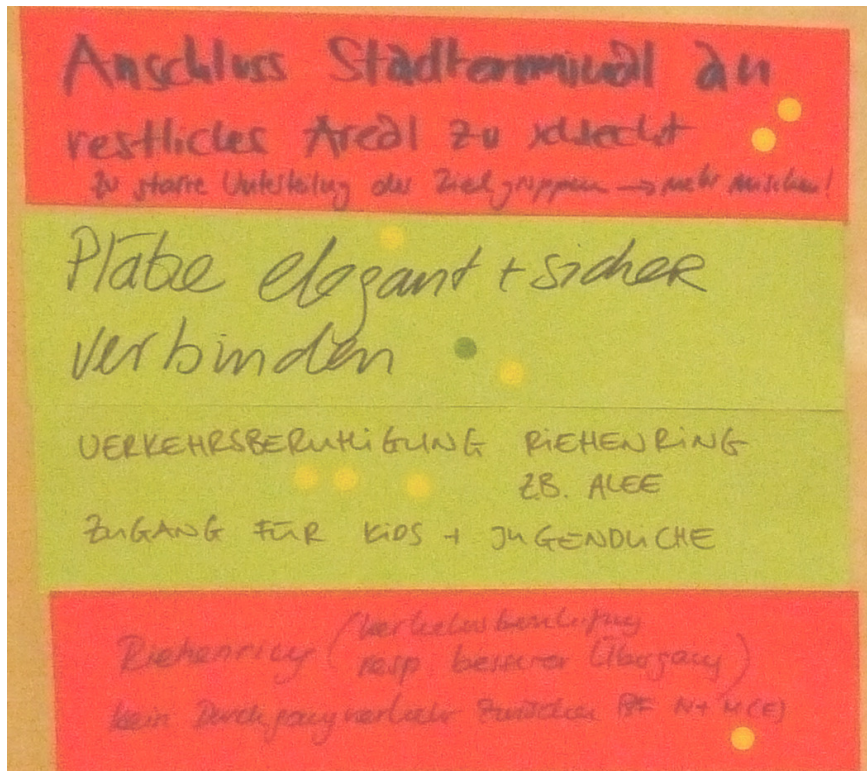 Anschluss Stadterminal an
restliches Areal zu schlecht
zu starre Unterteilung der Zielgruppen → mehr mischen!
Plätze elegant + sicher
verbinden
VERKEHRSBERUHiGUNG RiEHENRiNG
ZB. ALEE
ZUGANG FÜR KiDS + JUGENDLICHE
Riehenring (Verkehrsberuhigung
resp. besserer Übergang)
kein Durchgangverkehr zwischen N+